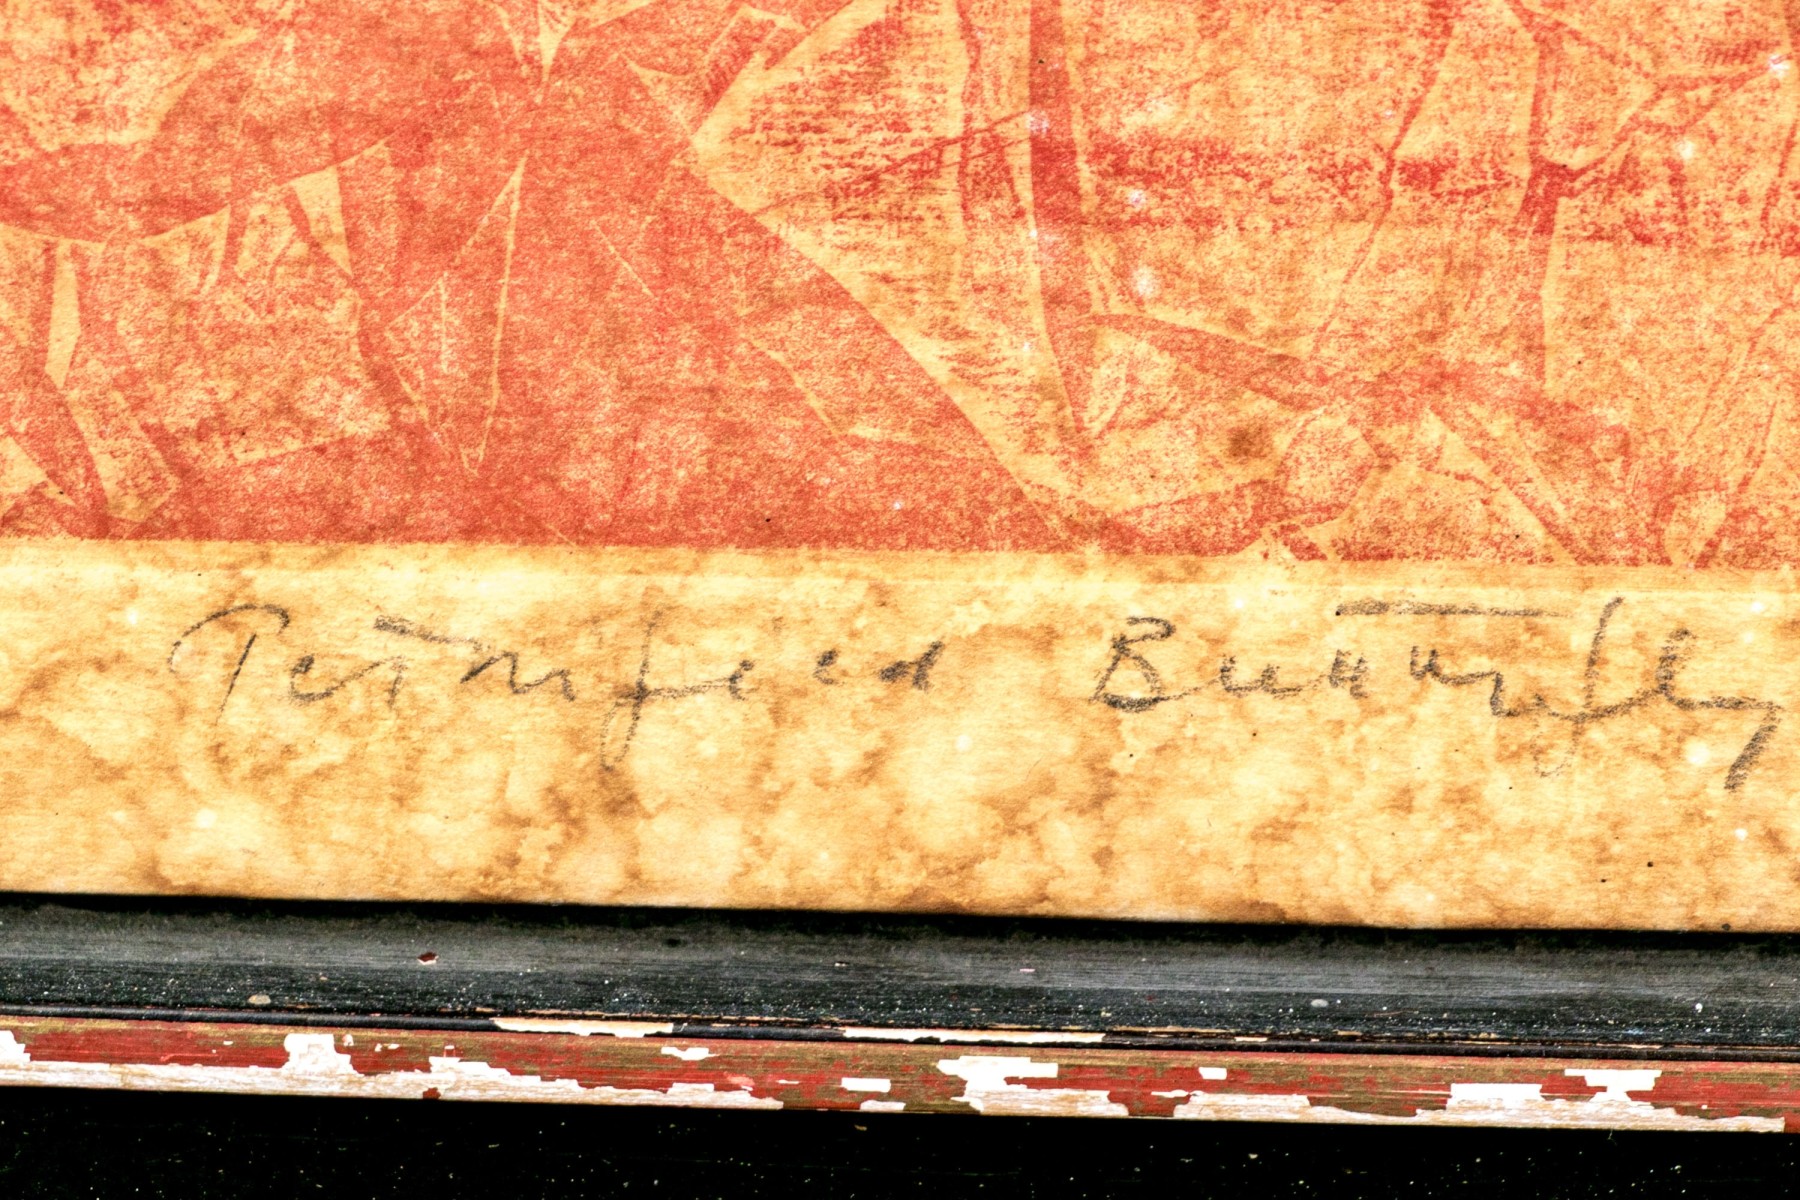 Petrified Butterfly